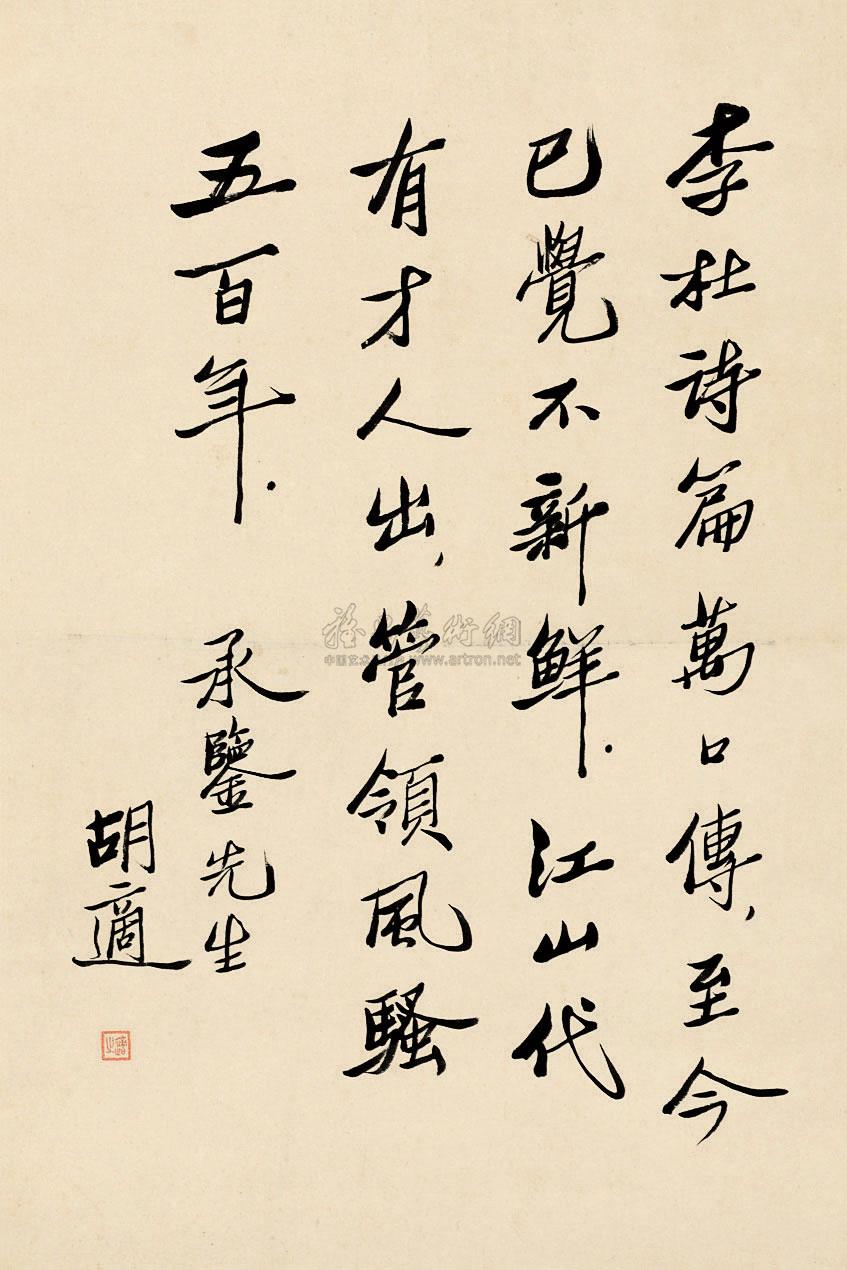 李杜詩篇萬口傳,至今
已覺不新鮮.江山代
有才人出,管領風騷
五百年.
承鑒先生
胡適
www.artron.net